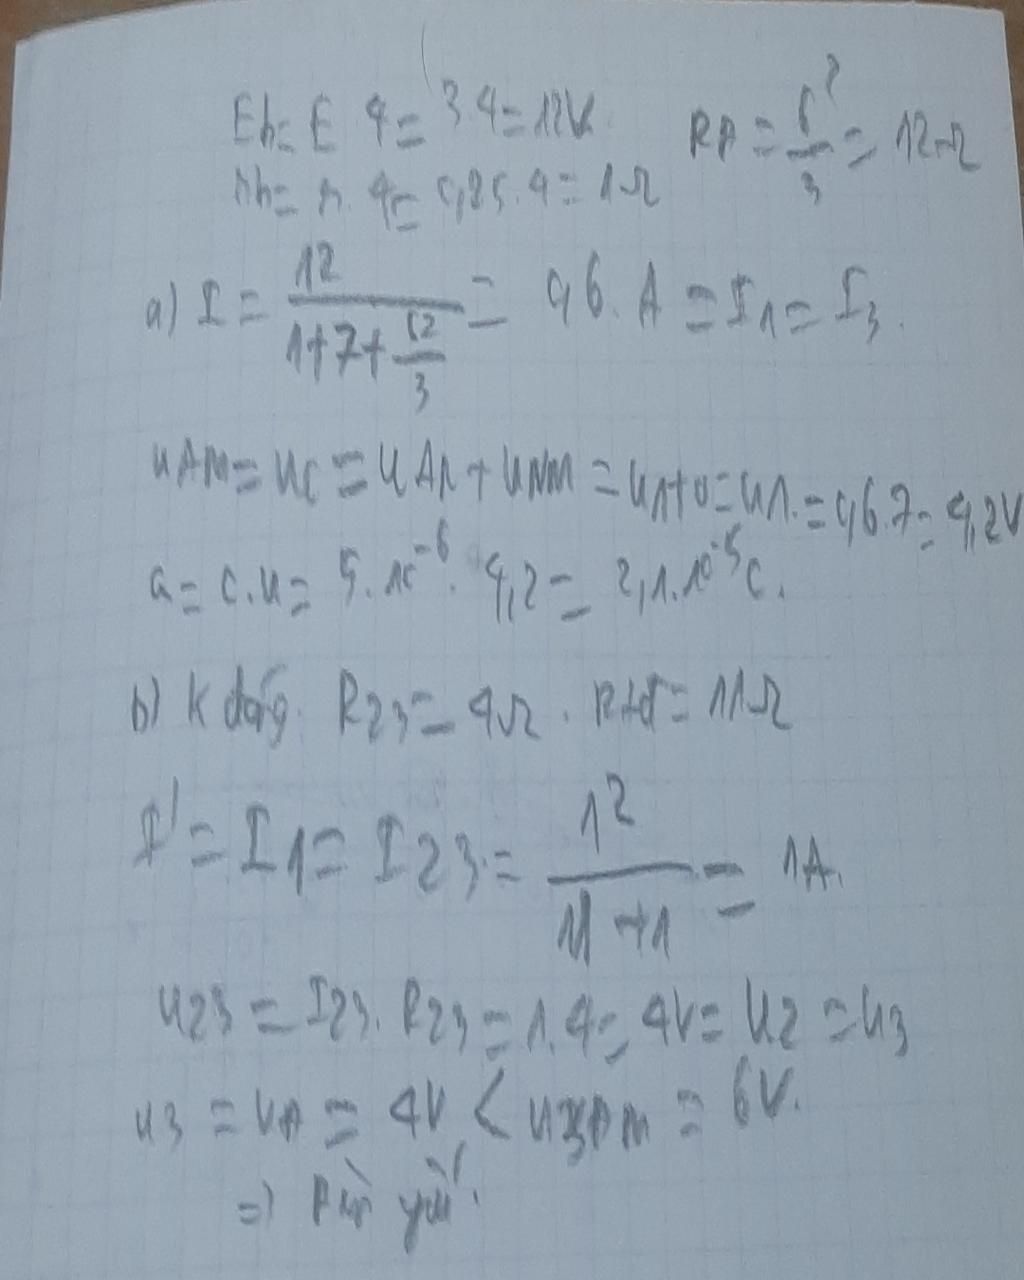 Eb = E 4 = 3.4 = 12V RĐ = 6²/3 = 12Ω
rb = r.4 = 0,25.4 = 1Ω
a) I = 12/(1+7+12/3) = 0,6.A = I1 = I3.
UAM = UC = UAN + UNM = U1+0 = U1. = 0,6.7 = 4,2V
Q = C.U = 5.10^-6. 4,2 = 2,1.10^-5 C.
b) K đóng. R23 = 4Ω. Rtđ = 11Ω
I' = I1 = I23. = 12/(11+1) = 1A.
U23 = I23. R23 = 1.4 = 4V = U2 = U3
U3 = UĐ = 4V < UĐm = 6V.
=) Đèn yếu.